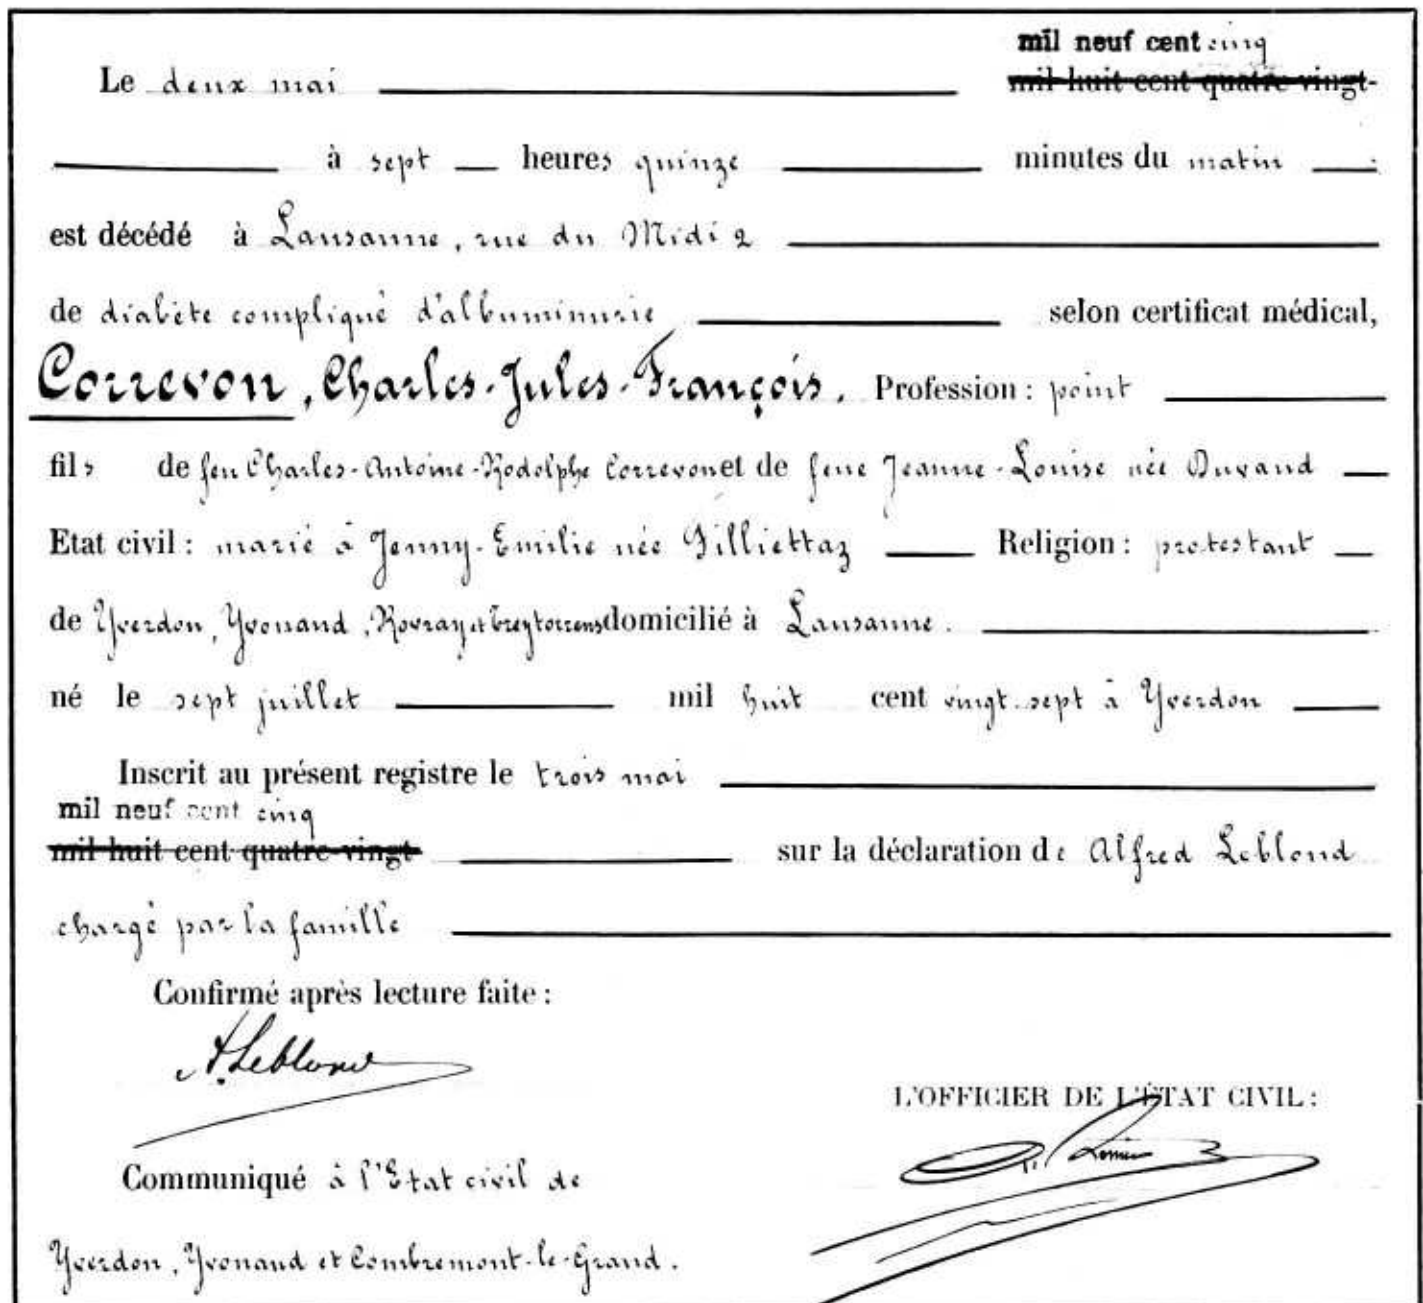 mil neuf cent cinq
Le deux mai mil huit cent quatre-vingt-
à sept heures quinze minutes du matin :
est décédé à Lausanne, rue du Midi 2
de diabète compliqué d'albuminurie selon certificat médical,
Correvon, Charles-Jules-François. Profession : point
fils de feu Charles-Antoine-Rodolphe Correvon et de feue Jeanne-Louise née Duvand
Etat civil : marié à Jenny-Emilie née Filliettaz Religion : protestant
de Yverdon, Yvonand, Rovray et Treytorrens domicilié à Lausanne.
né le sept juillet mil huit cent vingt-sept à Yverdon
Inscrit au présent registre le trois mai
mil neuf cent cinq
mil huit cent quatre-vingt- sur la déclaration de Alfred Leblond
chargé par la famille
Confirmé après lecture faite :
A. Leblond
L'OFFICIER DE L'ÉTAT CIVIL :
Communiqué à l'Etat civil de
Yverdon, Yvonand et Combremont-le-Grand.